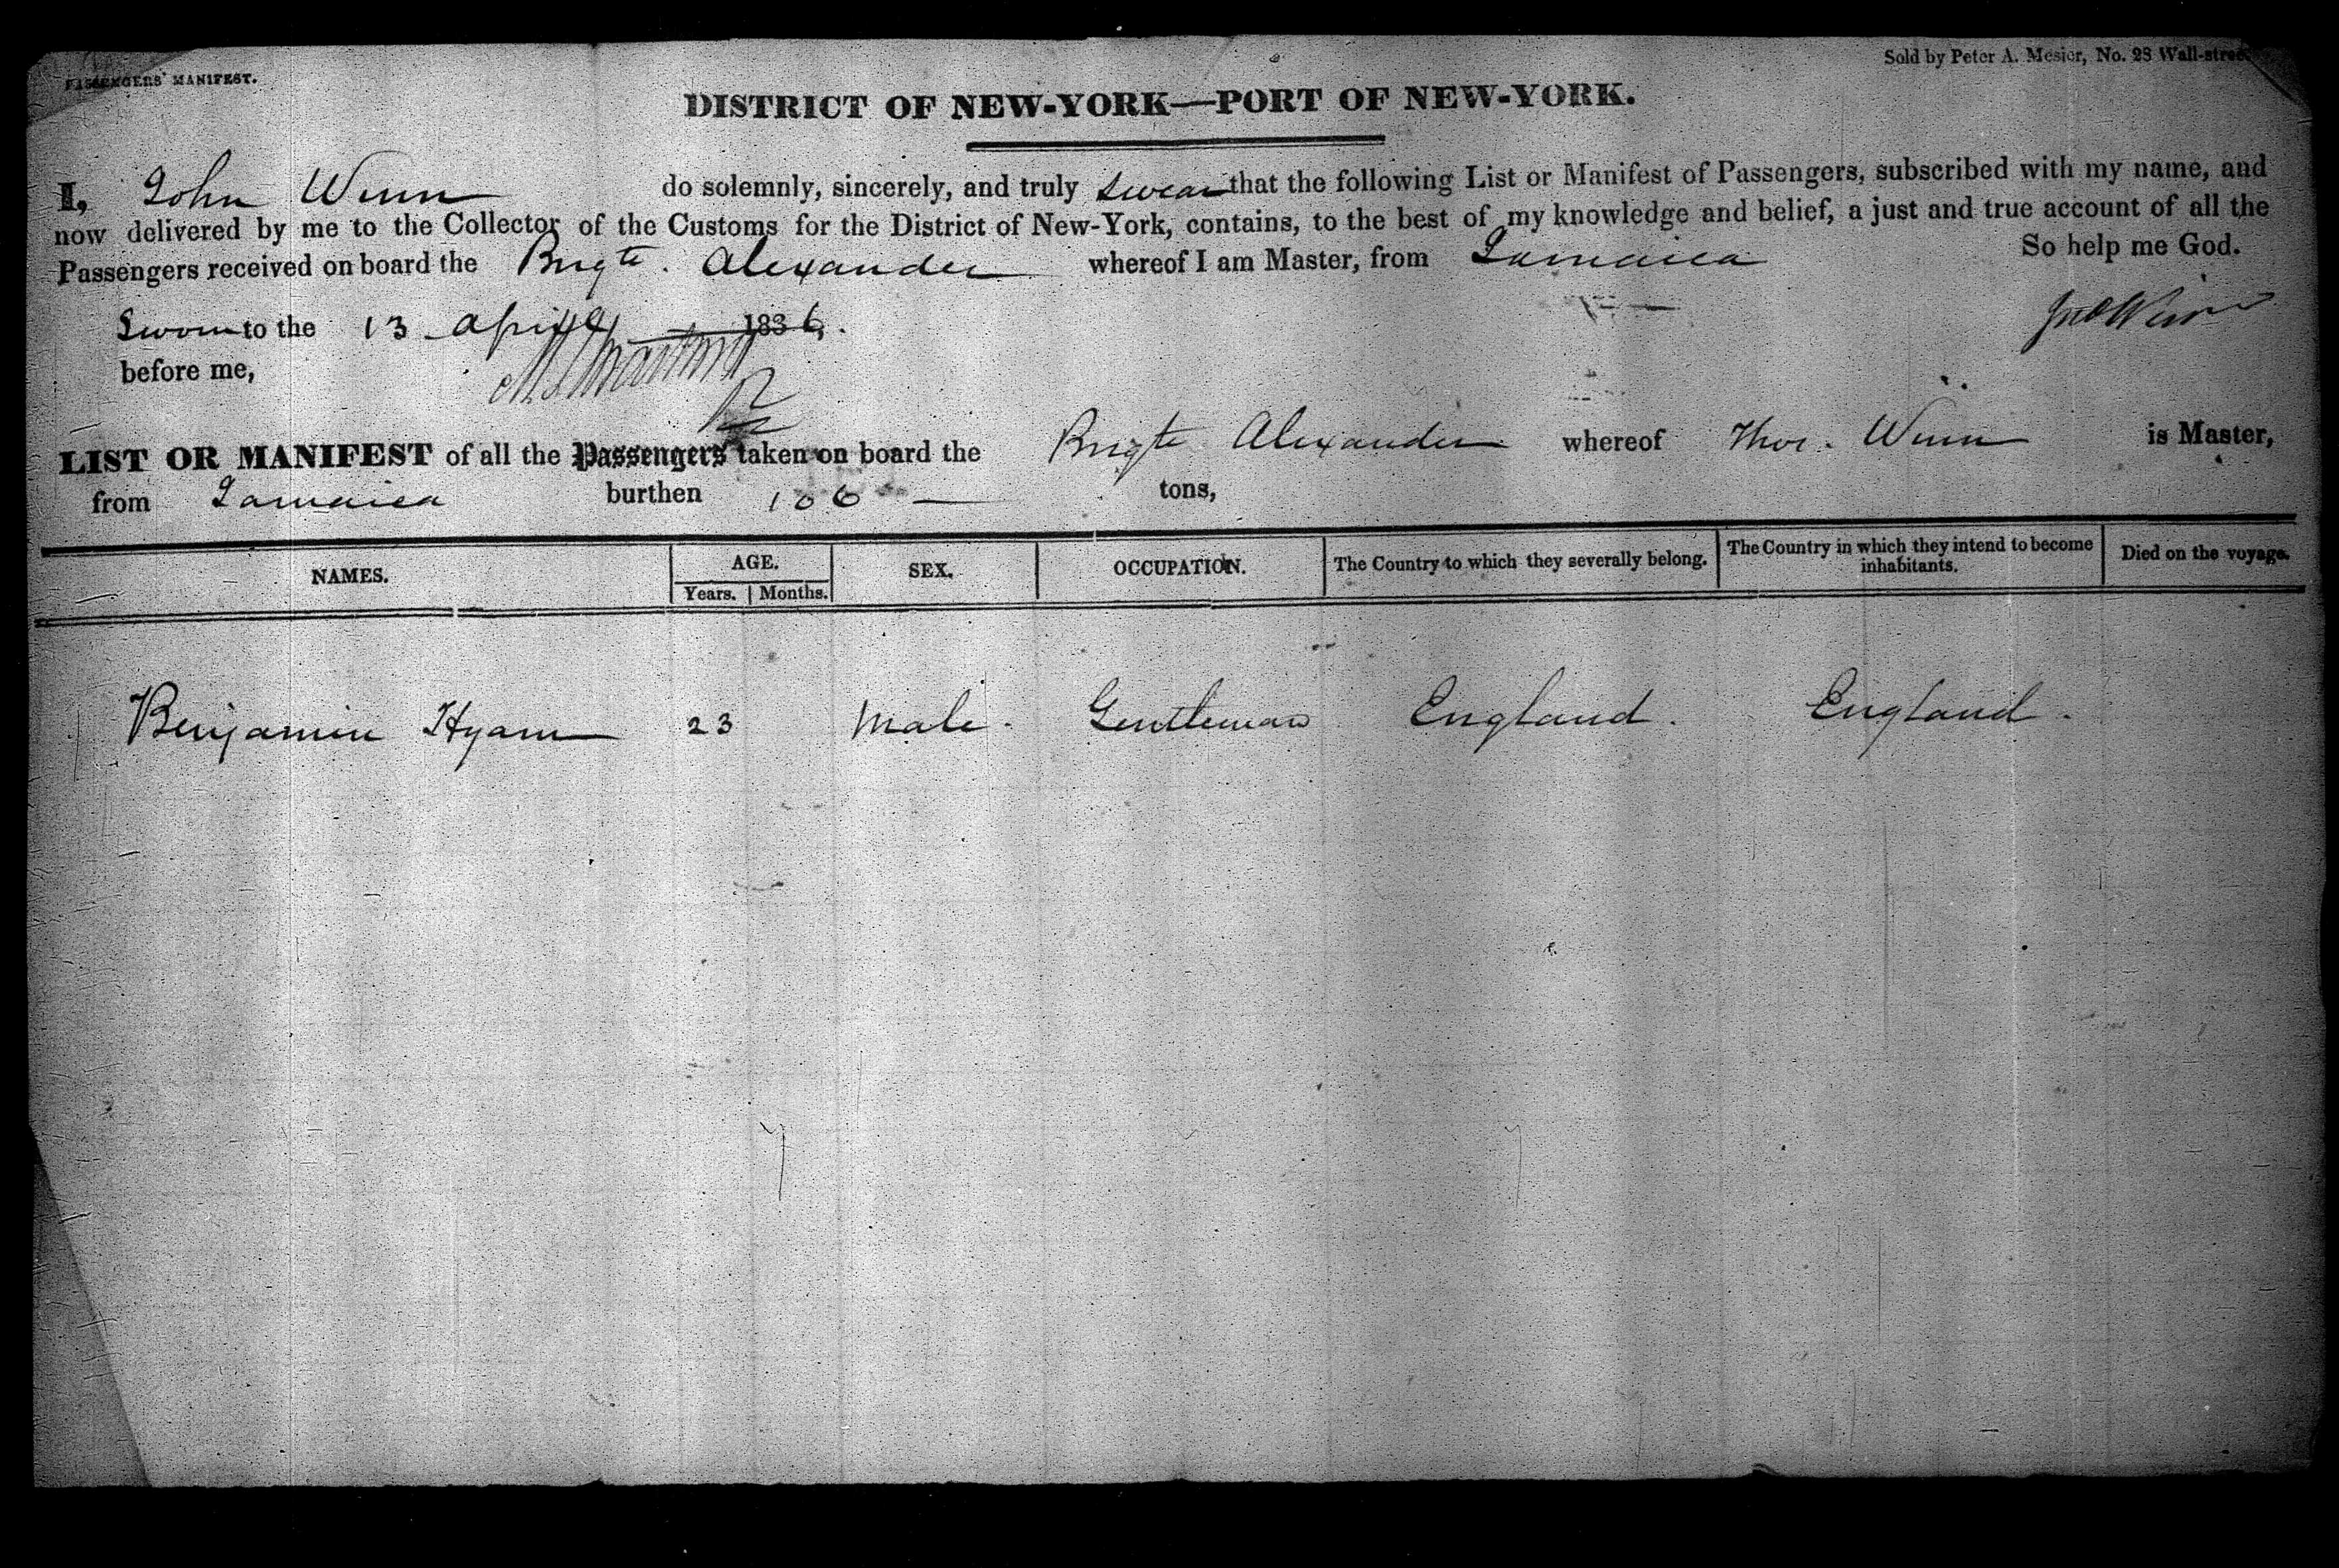 PASSENGERS' MANIFEST.
Sold by Peter A. Mesier, No. 28 Wall-street
DISTRICT OF NEW-YORK—PORT OF NEW-YORK.
I, John Winn do solemnly, sincerely, and truly swear that the following List or Manifest of Passengers, subscribed with my name, and
now delivered by me to the Collector of the Customs for the District of New-York, contains, to the best of my knowledge and belief, a just and true account of all the
Passengers received on board the Brigte. Alexander whereof I am Master, from Jamaica So help me God.
Sworn to the 13 April 1836.
Jno Winn
before me,
LIST OR MANIFEST of all the Passengers taken on board the Brigte Alexander whereof Thos. Winn is Master,
from Jamaica burthen 106 tons,
NAMES. AGE. SEX. OCCUPATION. The Country to which they severally belong. The Country in which they intend to become inhabitants. Died on the voyage.
Years. Months.
Benjamin Hyam 23 Male. Gentleman England. England.